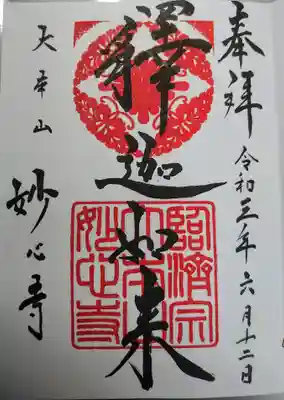 奉拝
令和三年六月十二日
釋迦如来
大本山
妙心寺
臨濟宗
大本山
妙心寺